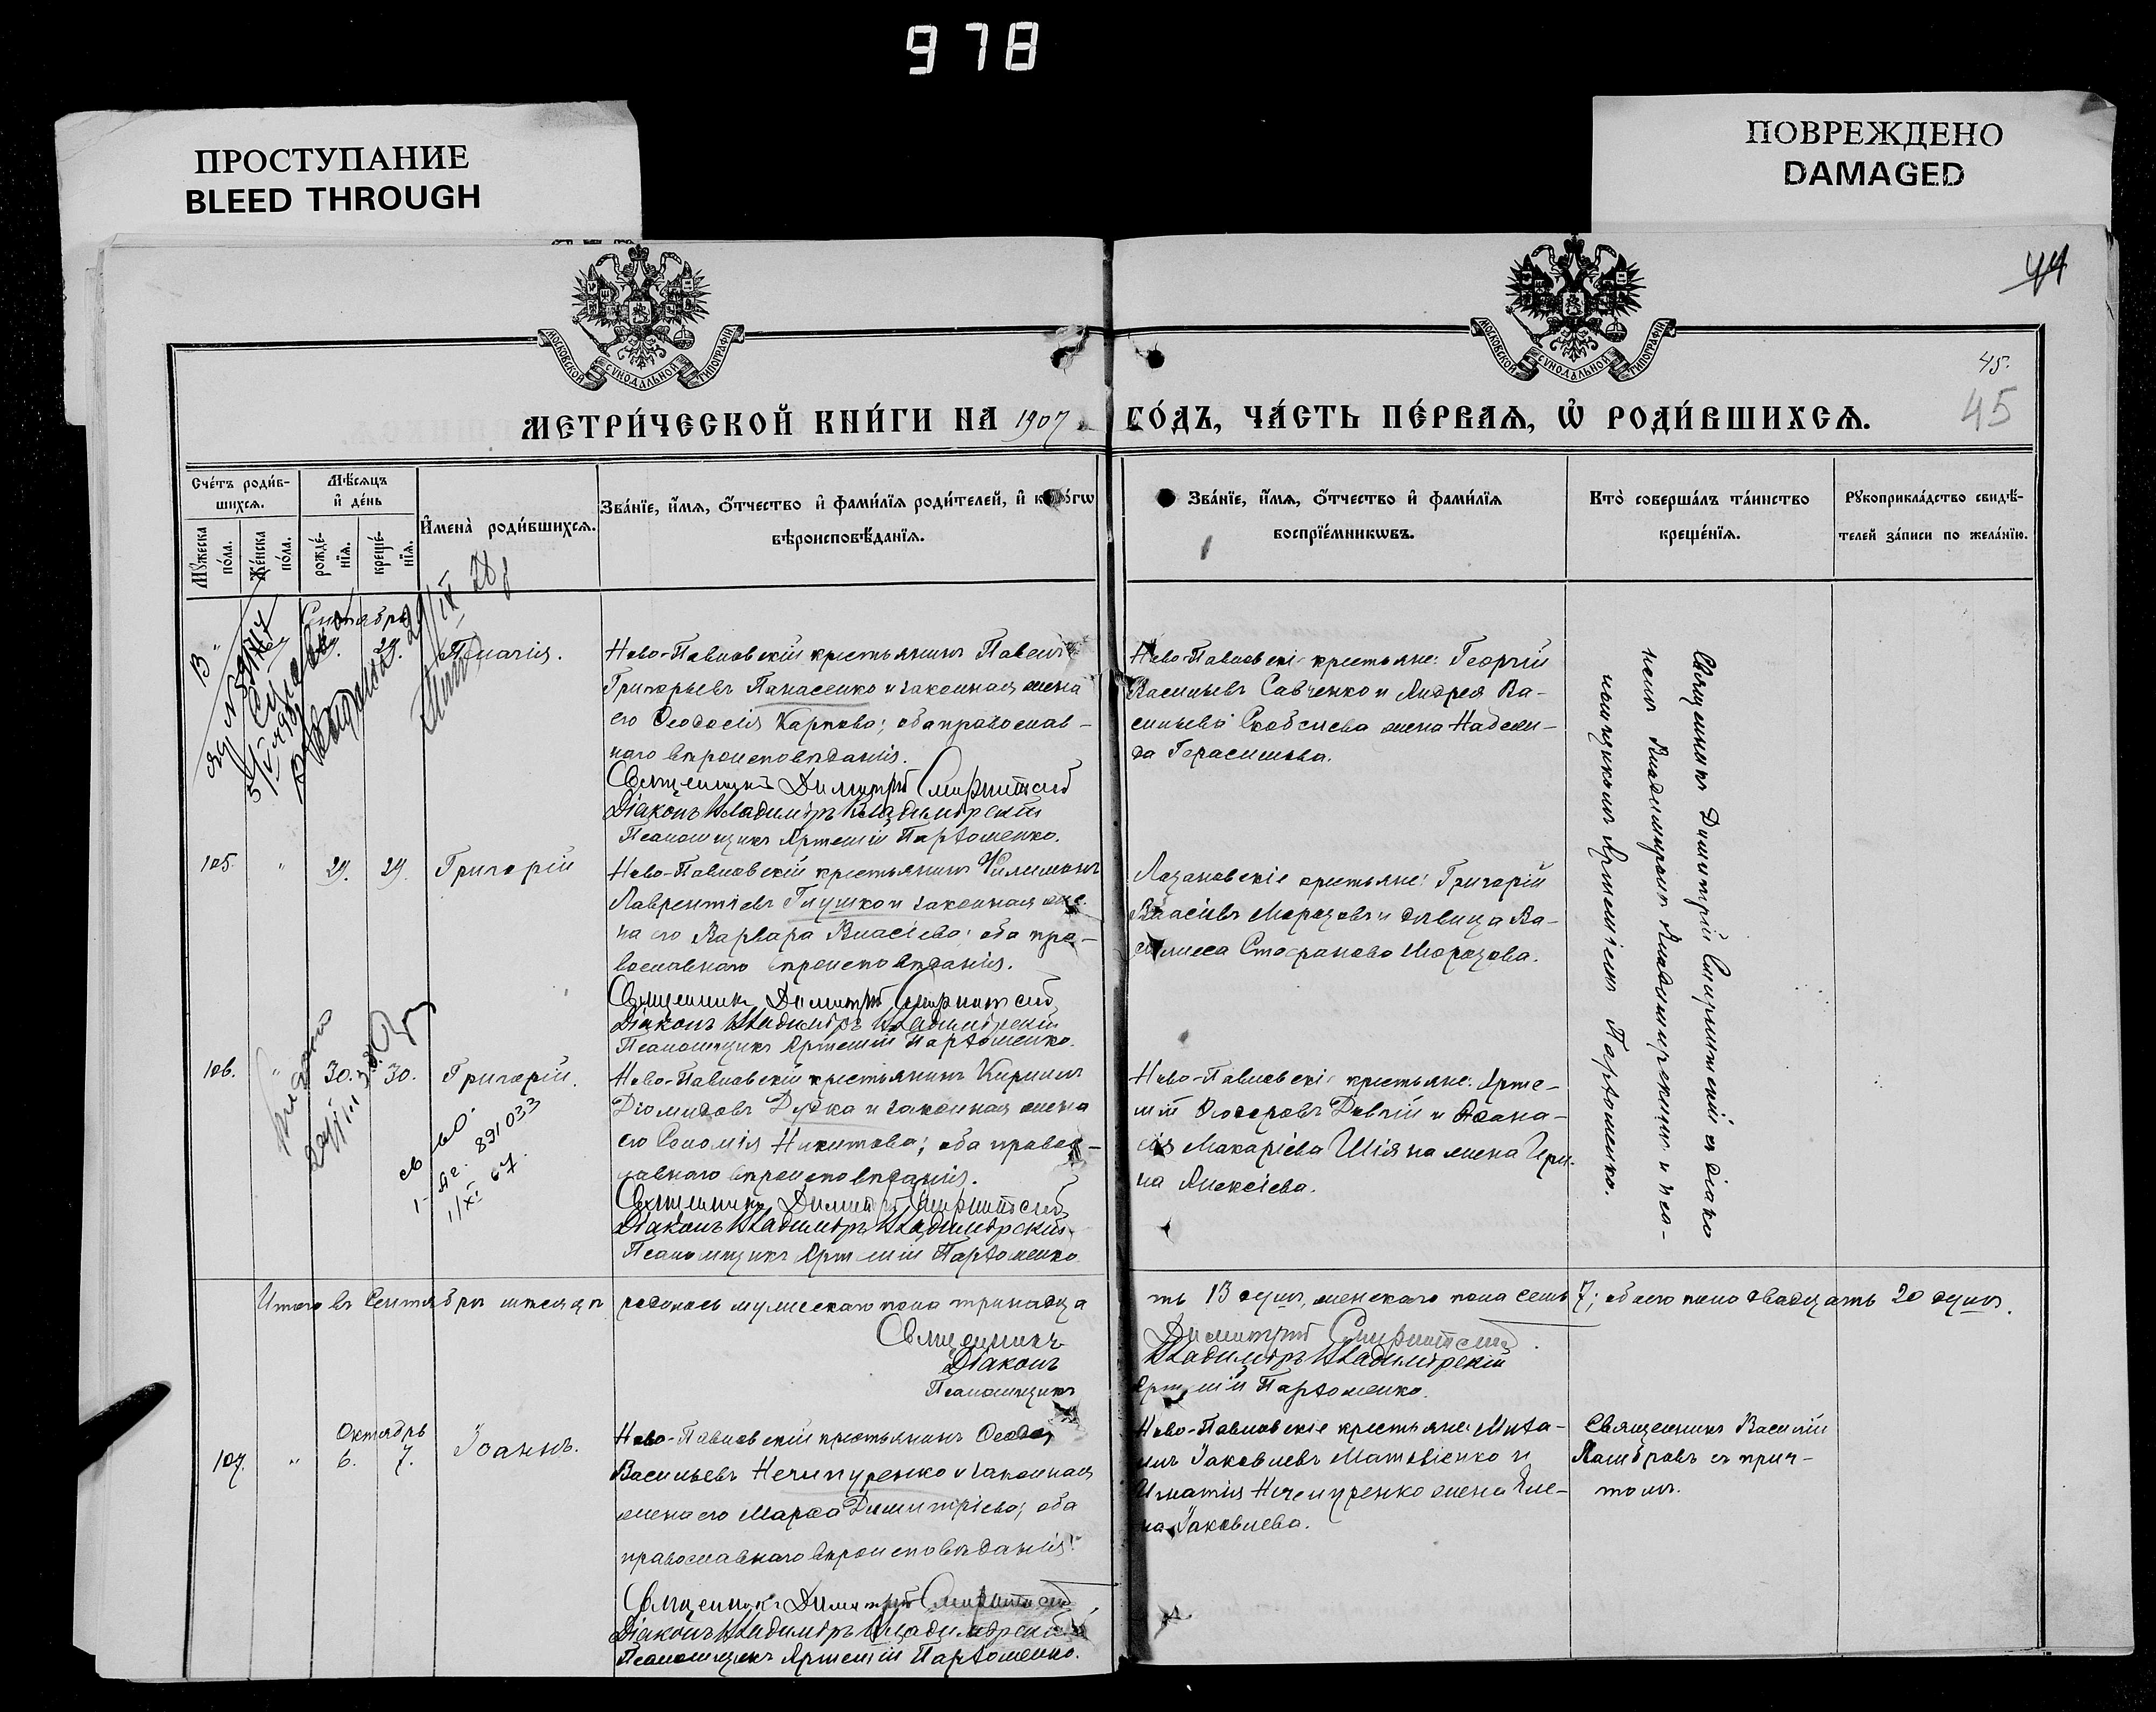 978
ПРОСТУПАНИЕ
BLEED THROUGH
ПОВРЕЖДЕНО
DAMAGED
44
45.
45
МОСКОВСКОЙ СѴНОДАЛЬНОЙ ТИПОГРАФІИ
МОСКОВСКОЙ СѴНОДАЛЬНОЙ ТИПОГРАФІИ
МЕТРИ́ЧЕСКОЙ КНИ́ГИ НА 1907 ГО́ДЪ, ЧА́СТЬ ПЕ́РВАЯ, Ѡ РОДИ́ВШИХСЯ.
Сче́тъ роди́в-
шихся.
Мѣ́сяцъ
и҆ де́нь
Мꙋ́жеска
по́ла.
Же́нска
по́ла.
рожде́-
нїя.
креще́-
нїя.
И҆мена̀ роди́вшихся.
Зва́нїе, и҆́мя, ѻ҆́тчество и҆ фами́лїя роди́телей, и҆
вѣроисповѣ́данїя.
Зва́нїе, и҆́мя, ѻ҆́тчество и҆ фами́лїя
воспрїе́мникѡвъ.
Кто̀ соверша́лъ та́инство
креще́нїя.
Рꙋкоприкла́дство свидѣ́-
телей за́писи по жела́нїю.
Сентябрь
29.
Ново-Павловскій крестьянинъ Павелъ
Григорьевъ Панасенко и законная жена
его Ѳеодосія Карпова; оба православ-
наго вѣроисповѣданія.
Священникъ Димитрій Смирнитскій
Діаконъ Владиміръ Владимірскій
Псаломщикъ Артемій Пархоменко.
Ново-Павловскіе крестьяне: Георгій
Васильевъ Савченко и Андрея Ва-
сильева жена Надеж-
да Герасимова.
Священникъ Димитрій Смирнитскій съ діако
номъ Владиміромъ Владимірскимъ и пса-
ломщикомъ Артеміемъ Пархоменко.
105. " 29. 29. Григорій
Ново-Павловскій крестьянинъ Филимонъ
Лаврентіевъ Глушко и законная же-
на его Варвара Власіева; оба пра-
вославнаго вѣроисповѣданія.
Священникъ Димитрій Смирнитскій
Діаконъ Владиміръ Владимірскій
Псаломщикъ Артемій Пархоменко.
крестьяне: Григорій
Власіевъ Морозовъ и дѣвица Ва-
силиса Морозова.
106. " 30. 30. Григорій.
891033
Ново-Павловскій крестьянинъ Кириллъ
Діомидовъ Дудка и законная жена
его Соломія Никитова; оба правос-
лавнаго вѣроисповѣданія.
Священникъ Димитрій Смирнитскій
Діаконъ Владиміръ Владимірскій
Псаломщикъ Артемій Пархоменко
Ново-Павловскіе крестьяне: Арте-
мій Ѳеодоровъ и Аѳана-
сія Макаріева жена Ири-
на Алексіева.
Итого въ Сентябрѣ мѣсяцѣ родилось мужескаго пола тринадца
ть 13 душъ, женскаго пола семь 7; обоего пола двадцать 20 душъ.
Священникъ Димитрій Смирнитскій
Діаконъ Владиміръ Владимірскій
Псаломщикъ Артемій Пархоменко.
Октябрь
107. " 6. 7. Іоаннъ.
Ново-Павловскій крестьянинъ
Васильевъ Нечипуренко и законная
жена его Марѳа Димитріева; оба
православнаго вѣроисповѣданія.
Священникъ Димитрій Смирнитскій
Діаконъ Владиміръ Владимірскій
Псаломщикъ Артемій Пархоменко.
Ново-Павловскіе крестьяне: Миха-
илъ Іаковлевъ Матвіенко и
Игнатія Нечипуренко жена Еле-
на Іаковлева.
Священникъ Василій
съ прич-
томъ.